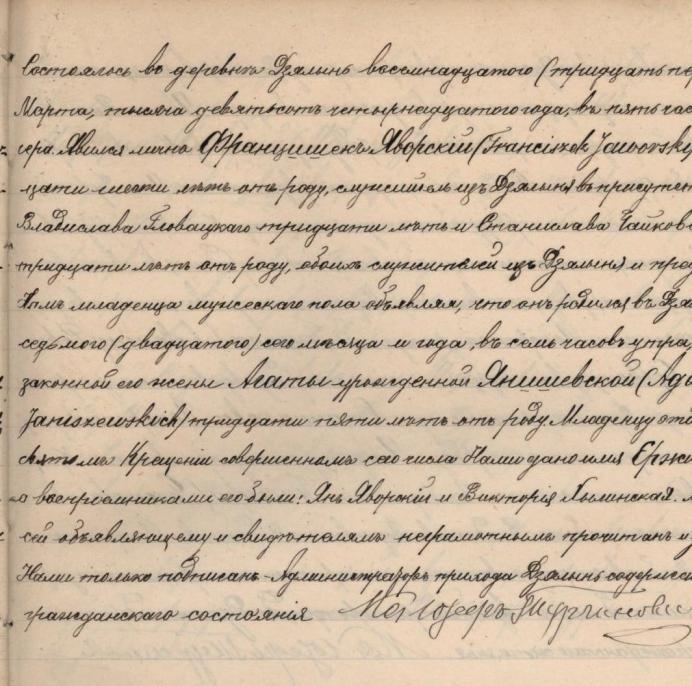 Состоялось въ деревнѣ Дзялынь восемнадцатого (тридцать пе
Марта, тысяча девятьсотъ четырнадцатого года, въ пять час
чера. Явился лично Францишекъ Яворскій (Franciszek Jaworsky
цати шести лѣтъ отъ роду, служитель изъ Дзялыня въ присутст
Владислава Гловацкаго тридцати лѣтъ и Станислава Чайковс
тридцати лѣтъ отъ роду, обоихъ служителей изъ Дзялыня и пред
Намъ младенца мужескаго пола объявляя, что онъ родился въ Дзя
седьмого (двадцатого) сего мѣсяца и года, въ семь часовъ утра,
законной его жены Агаты урожденной Янишевской (Aga
Janiszewskich) тридцати пяти лѣтъ отъ роду. Младенцу это
святомъ Крещеніи совершенномъ сего числа Нами дано имя Ержи
а воспріемниками его были: Янъ Яворскій и Викторія Хылинская.
сей объявляющему и свидѣтелямъ неграмотнымъ прочитанъ и
Нами только подписанъ. Администраторъ прихода Дзялынь содержа
гражданскаго состоянія